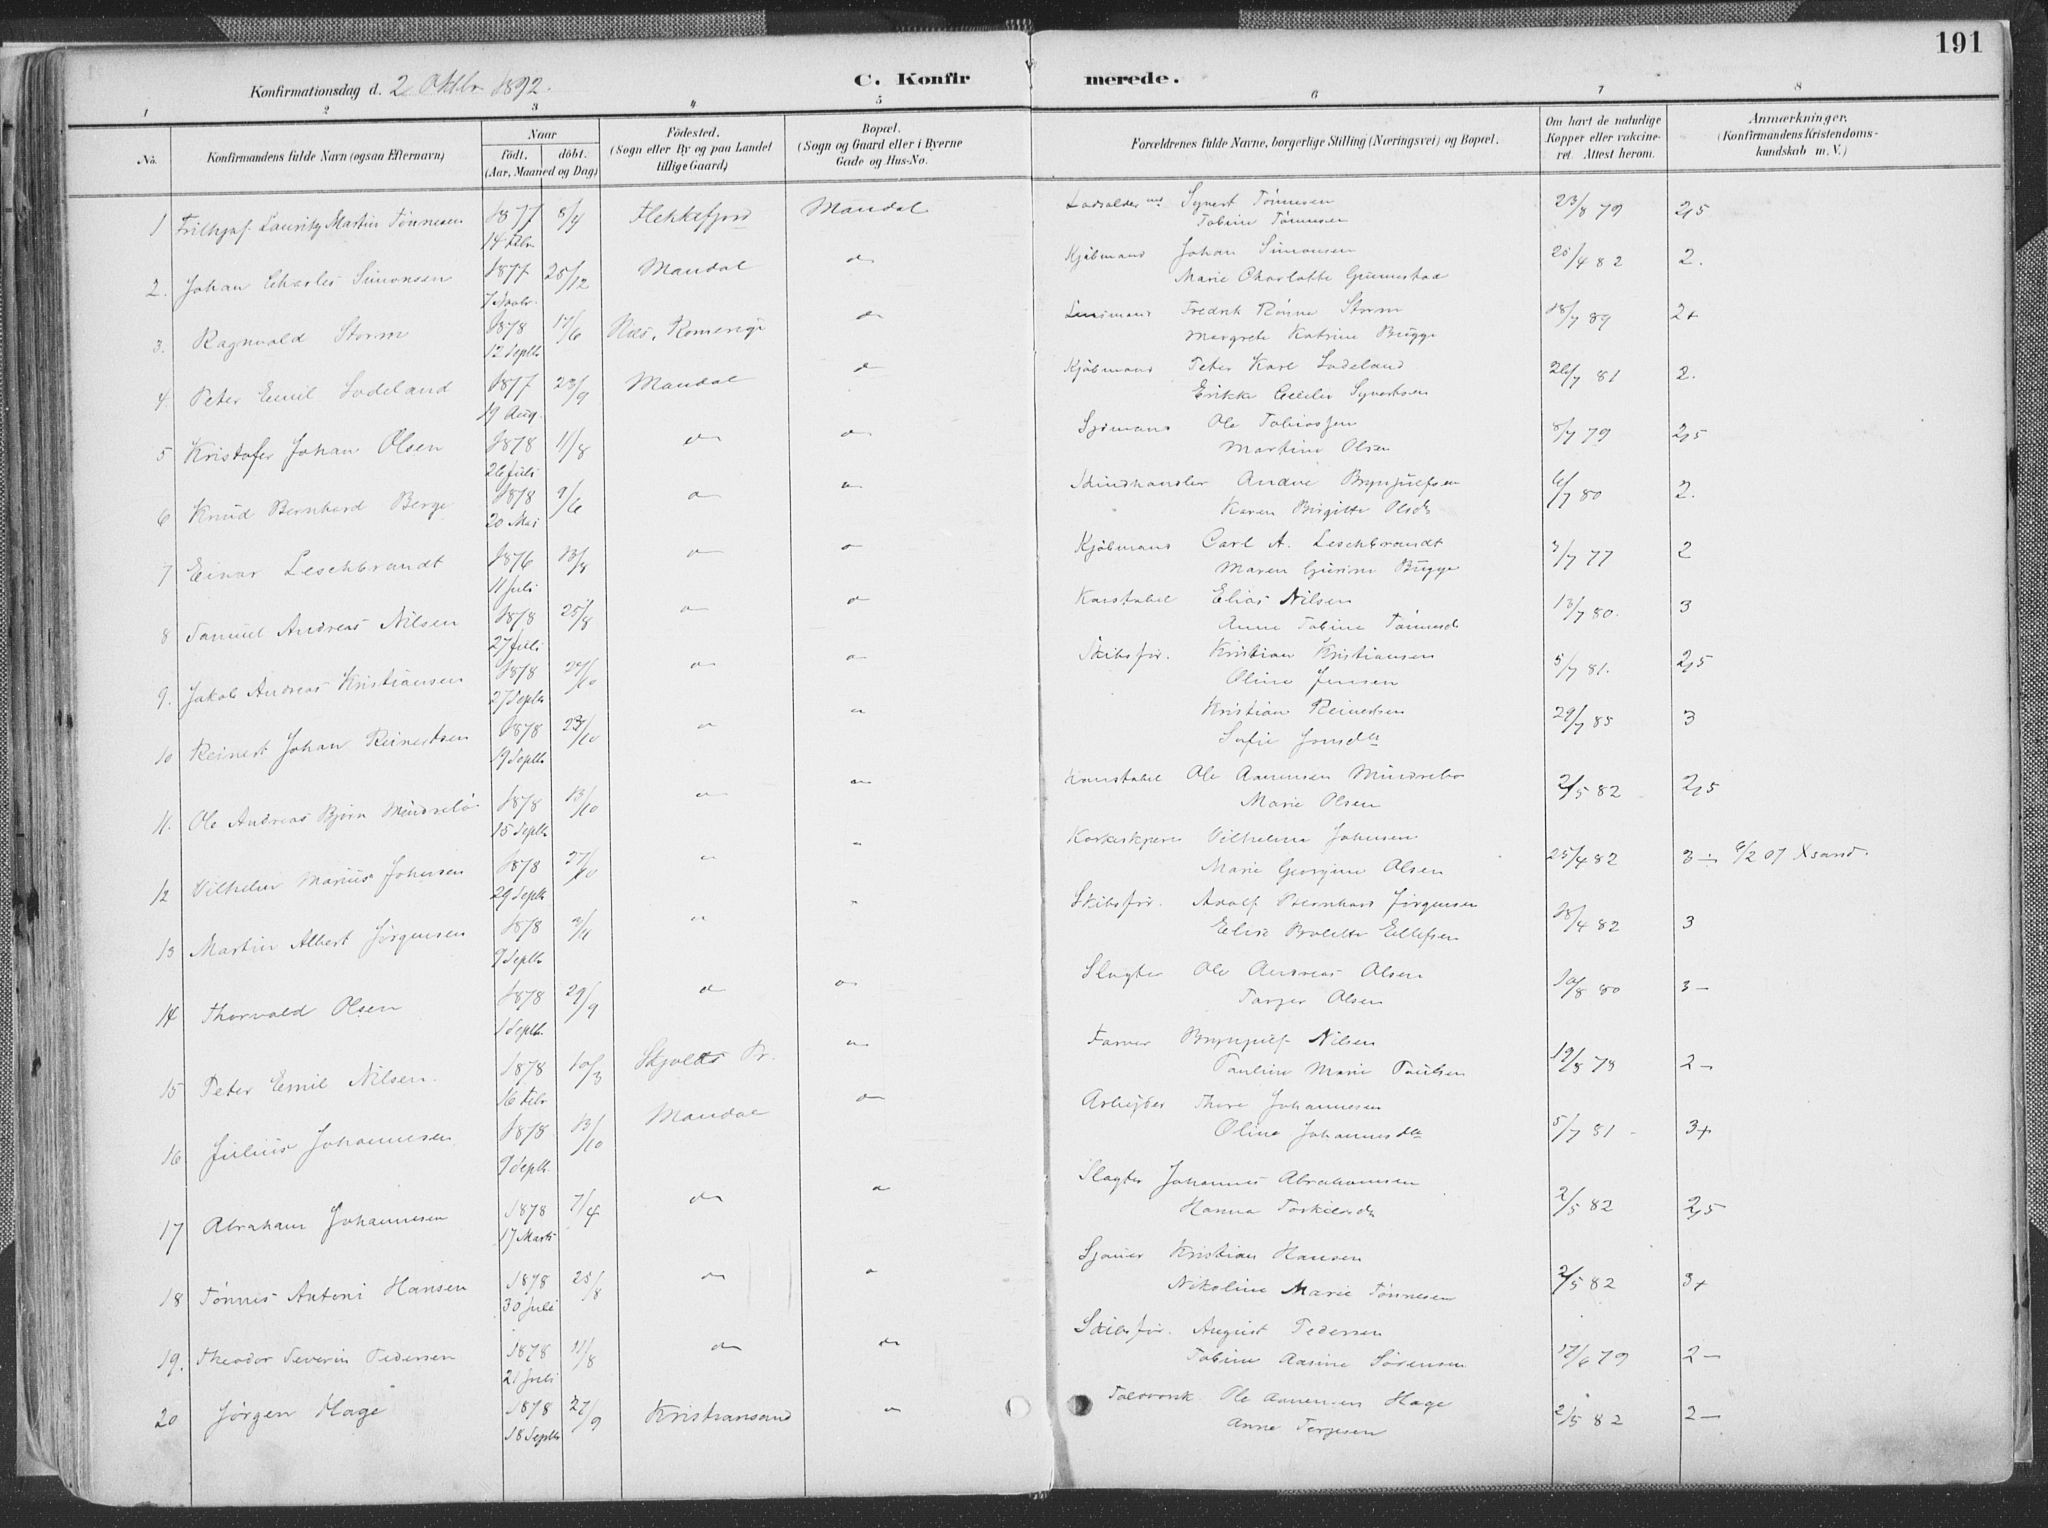 191
Konfirmationsdag d. 2 Oktbr 1892.
C. Konfirmerede.
1 2 3 4 5 6 7 8
No.
Konfirmandens fulde Navn (ogsaa Efternavn)
Naar
födt. döbt.
(Aar, Maaned og Dag)
Födested.
(Sogn eller By og paa Landet
tillige Gaard)
Bopæl.
(Sogn og Gaard eller i Byerne
Gade og Hus-No.
Forældrenes fulde Navne, borgerlige Stilling (Næringsvei) og Bopæl.
Om havt de naturlige
Kopper eller vakcine-
ret. Attest herom.
Anmærkninger.
(Konfirmandens Kristendoms-
kundskab m. V.)
1 Frithjof Lauritz Martin Tønnesen 1877 14 Febr. 8/4 Flekkefjord Mandal Syvert Tønnesen 23/8 79 2,5
Tobine Tønnesen
2. Johan Charles Simonsen 1877 7 Novbr. 25/12 Mandal do Kjøbmand Johan Simonsen 25/4 82 2.
Marie Charlotte Gunnestad
3. Ragnvald Storm 1878 12 Septb 17/6 Næs, Romerige do Fredrik Rønne Storm 18/7 89 2+
Margrete Katrine Bugge
4. Peter Emil Lodeland 1877 19 Aug. 23/9 Mandal do Kjøbmand Peter Karl Lodeland 26/7 81 2.
Erikke Cecilie Syvertsen
5 Kristofer Johan Olsen 1878 26 Juli 11/8 do do Sjømand Ole Tobiassen 8/7 79 2,5
Martine Olsen
6 Knud Bernhard Berge 1878 20 Mai 9/6 do do Skindhandler Andre Brynjulfsen 6/7 80 2.
Karen Birgitte Olsdr
7 Einar Leschbrandt 1876 11 Juli 13/8 do do Kjøbmand Carl A. Leschbrandt 3/7 77 2
Maren Gurine Bugge
8 Samuel Andreas Nilsen 1878 27 Juli 25/8 do do Konstabel Elias Nilsen 13/7 80. 3
Anne Tobine Tønnesdr
9. Jakob Andreas Kristiansen 1878 27 Septb do do Skibsfør. Kristian Kristiansen 5/7 81. 2,5
Oline Jensen
10 Reinert Johan Reinertsen 1878 19 Septb 23/10 do do Kristian Reinertsen 29/7 85 3
Sofie
11. Ole Andreas Bjørn Mindrebø 1878 15 Septb 13/10 do do Konstabel Ole Aanensen Mindrebø 2/5 82 2,5
Marie Olsen
12 Vilhelm Marius Johnsen 1878 29 Septb 27/10 do do Vilhelm Johnsen 25/4 82 3 ÷ 6/2 07 Xsand.
Marie Georgine Olsen
13 Martin Albert Jørgensen 1878 9 Septb do do Skibsfør. Adolf Bernhard Jørgensen 18/4 82 3
Elise Bolette Ellefsen
14 Thorvald Olsen 1878 1 Septb. 29/9 do do Slagter Ole Andreas Olsen 10/8 80 3 –
Tarjer Olsen
15 Peter Emil Nilsen. 1878 16 Febr 10/3 Skjolds Pr. do Farver Brynjulf Nilsen 19/8 78 2 –
Pauline Marie Paulsen
16 Julius Johannesen 1878 9 Septb. 13/10 Mandal do Arbejder Thore Johannesen 5/7 81 – 3+
Oline Johannesdtr
17 Abraham Johannesen 1878 17 Marts 7/4 do do Slagter Johannes Abrahamsen 2/5 82 2,5
Hanna Torkildsdr
18 Tønnes Antoni Hansen 1878 30 Juli 25/8 do do Sjøman Kristian Hansen 2/5 82 3+
Nikoline Marie Tønnesen
19. Theodor Severin Pedersen 1878 21 Juli 11/8 do do Skibsfør. August Pedersen 17/6 79 2 –
Tobine Aasine Sørensen
20 Jørgen Hage 1878 18 Septb 27/9 Kristiansand do Ole Aanensen Hage 2/5 82 2 –
Anne Terjesen